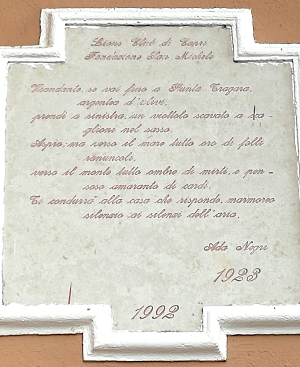 Lions Club di Capri
Fondazione San Michele
Viandante, se vai fino a Punta Tragara,
argentea d'ulivi,
prendi a sinistra, un viottolo scavato a sca-
glione nel sasso.
Aspro; ma verso il mare tutto oro di folli
ranuncoli,
verso il monte tutto ombre di mirti, e pen-
soso amaranto di cardi.
Ti condurrà alla casa che risponde, marmoreo
silenzio ai silenzi dell'aria.
Ada Negri
1923
1992